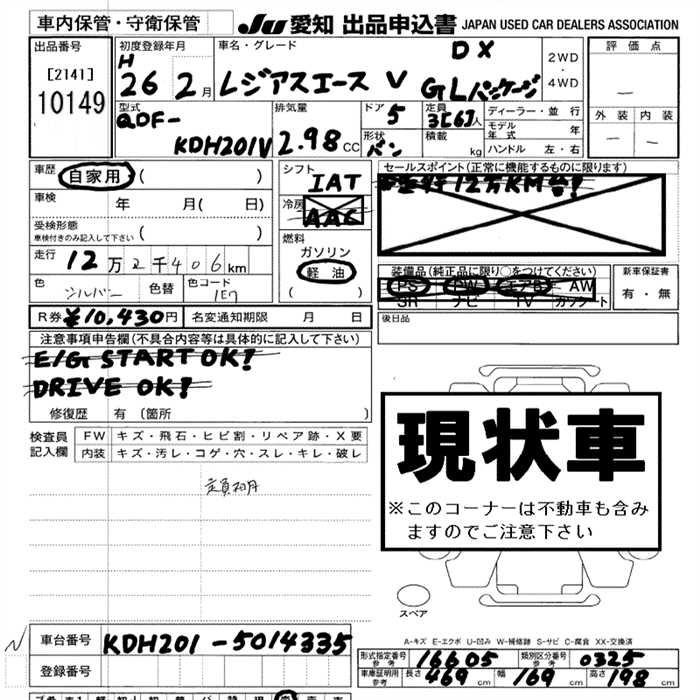 車内保管・守衛保管 JU 愛知 出品申込書 JAPAN USED CAR DEALERS ASSOCIATION
出品番号 初度登録年月 車名・グレード 2WD ・ 4WD 評価点
[2141] H 26 2月 レジアスエース V DX GLパッケージ
10149
型式 排気量 ドア 定員 ディーラー・並行 外装 内装
QDF- KDH201V 2.98CC 5 3[6]人 モデル年式 年
形状 バン 積載 kg ハンドル 左・右
車歴 自家用 ( )
シフト IAT
セールスポイント(正常に機能するものに限ります)
12万KM台!
車検 年 月( 日)
冷房 AAC
受検形態 車検付きのみ記入して下さい ( )
燃料 ガソリン 軽油 ( )
走行 12万2千406km
装備品(純正品に限り○をつけてください) 新車保証書
PS PW エアB AW 有・無
SR ナビ TV カセット
色 シルバー 色替 色コード 1E7
R券 ¥10,430円 名変通知期限 月 日
後日品
注意事項申告欄(不具合内容等は具体的に記入して下さい)
E/G START OK!
DRIVE OK!
修復歴 有 〔箇所 〕
検査員記入欄 FW キズ・飛石・ヒビ割・リペア跡・X要
内装 キズ・汚レ・コゲ・穴・スレ・キレ・破レ
現状車
※このコーナーは不動車も含みますのでご注意下さい
スペア
A-キズ E-エクボ U-凹み W-補修跡 S-サビ C-腐食 XX-交換済
車台番号 KDH201-5014335
登録番号
形式指定番号 参考 16605 類別区分番号 参考 0325
車庫証明用 参考 長さ 469cm 幅 169cm 高さ 198cm